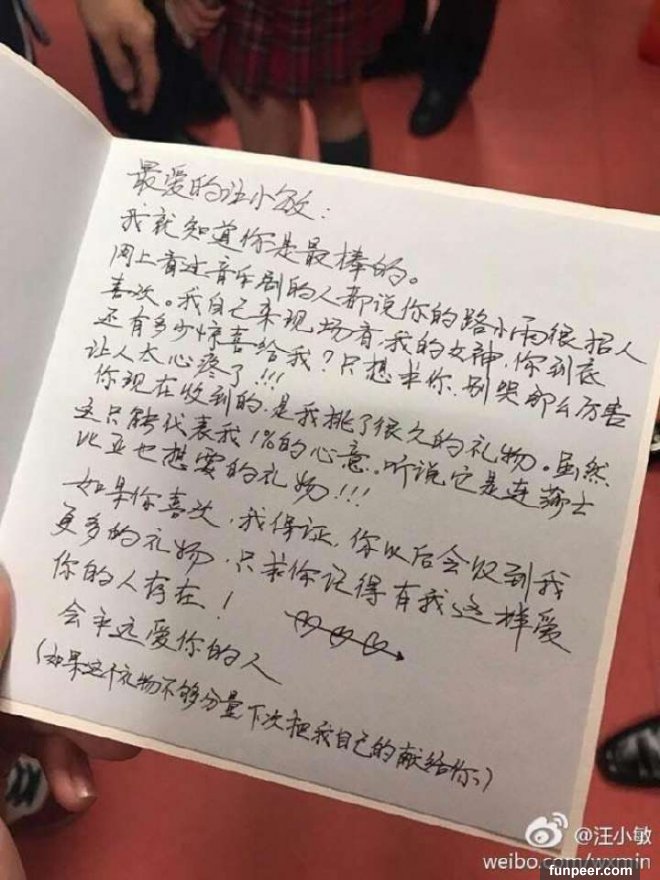 最爱的汪小敏：
我就知道你是最棒的。
网上看过音乐剧的人都说你的路小雨很招人
喜欢。我自己来现场看，我的女神，你到底
还有多少惊喜给我？只想求你，别哭那么厉害
让人太心疼了!!!
你现在收到的，是我挑了很久的礼物。虽然
这只能代表我1%的心意。听说它是连莎士
比亚也想要的礼物!!!
如果你喜欢，我保证，你以后会收到我
更多的礼物，只求你记得有我这样爱
你的人存在！
会永远爱你的人
(如果这个礼物不够分量下次把我自己的献给你:)
@汪小敏
weibo.com/wxmin
funpeer.com